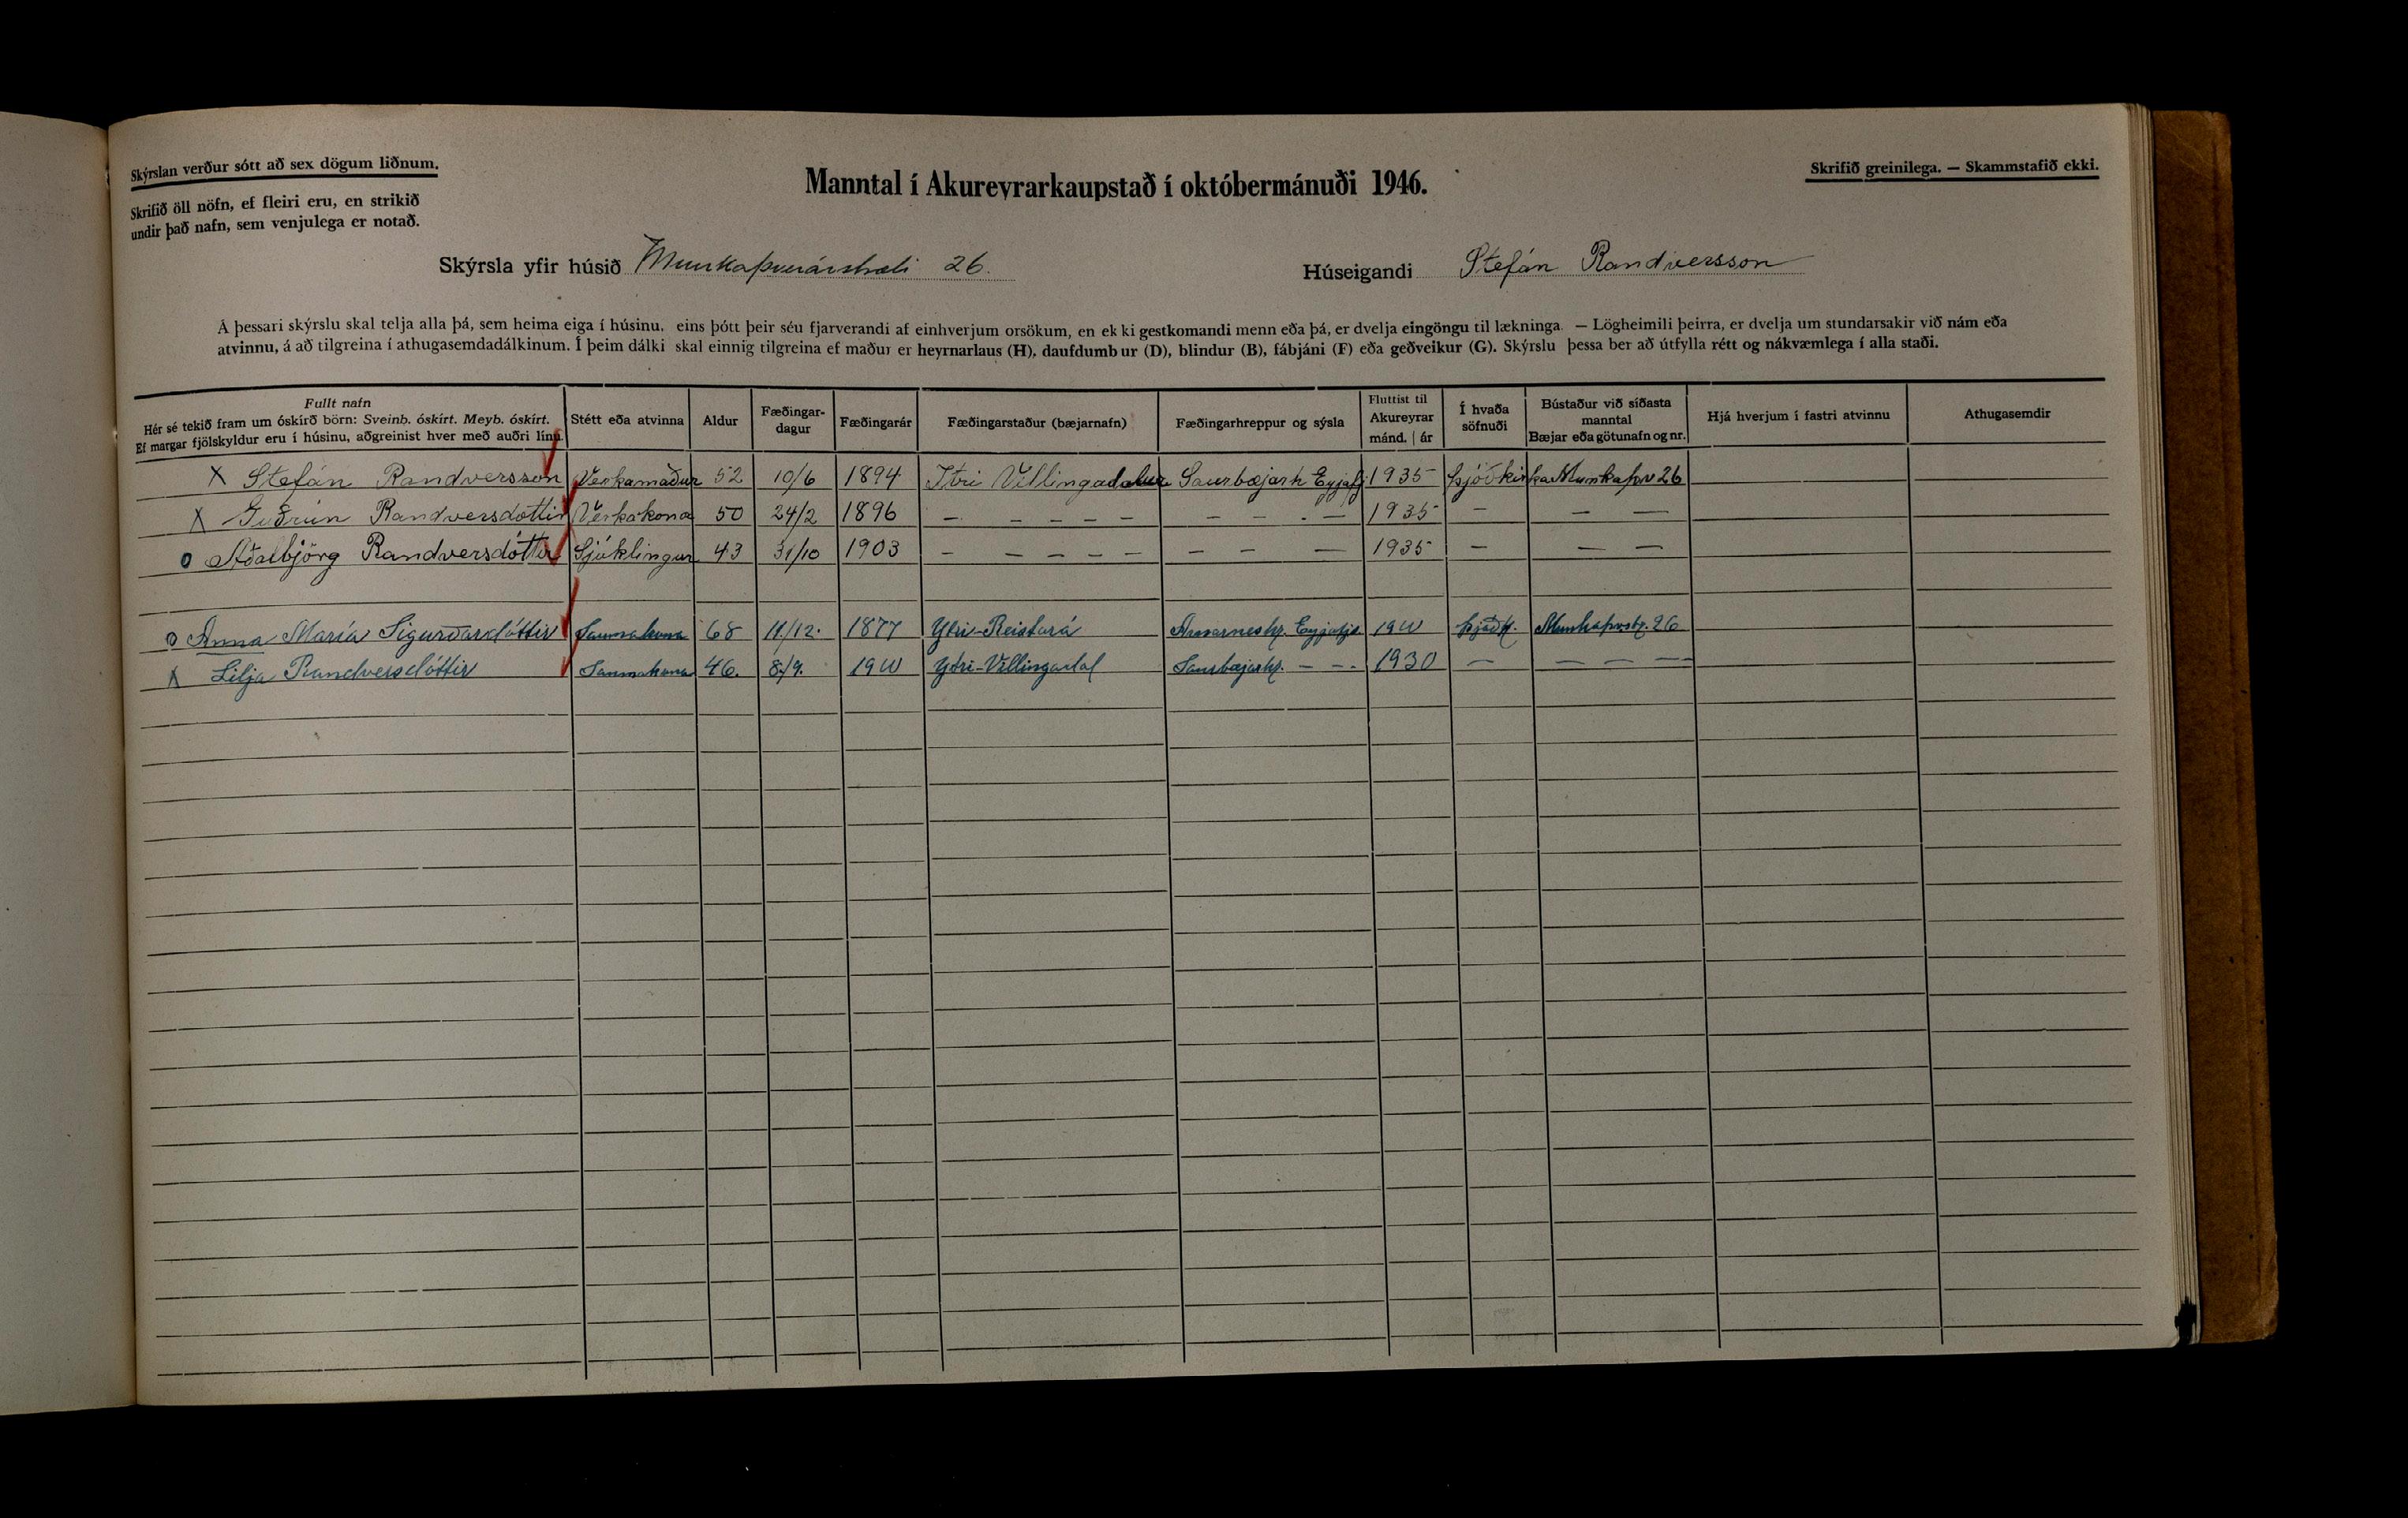 Skýrslan verður sótt að sex dögum liðnum.
Skrifið öll nöfn, ef fleiri eru, en strikið
undir það nafn, sem venjulega er notað.
Manntal í Akureyrarkaupstað í októbermánuði 1946.
Skrifið greinilega. — Skammstafið ekki.
Skýrsla yfir húsið Munkaþverárstræti 26. Húseigandi Stefán Randversson
Á þessari skýrslu skal telja alla þá, sem heima eiga í húsinu, eins þótt þeir séu fjarverandi af einhverjum orsökum, en ekki gestkomandi menn eða þá, er dvelja eingöngu til lækninga. — Lögheimili þeirra, er dvelja um stundarsakir við nám eða
atvinnu, á að tilgreina í athugasemdadálkinum. Í þeim dálki skal einnig tilgreina ef maður er heyrnarlaus (H), daufdumbur (D), blindur (B), fábjáni (F) eða geðveikur (G). Skýrslu þessa ber að útfylla rétt og nákvæmlega í alla staði.
Fullt nafn
Hér sé tekið fram um óskírð börn: Sveinb. óskírt. Meyb. óskírt.
Ef margar fjölskyldur eru í húsinu, aðgreinist hver með auðri línu.
Stétt eða atvinna
Aldur
Fæðingar-
dagur
Fæðingarár
Fæðingarstaður (bæjarnafn)
Fæðingarhreppur og sýsla
Fluttist til
Akureyrar
mánd. | ár
Í hvaða
söfnuði
Bústaður við síðasta
manntal
Bæjar eða götunafn og nr.
Hjá hverjum í fastri atvinnu
Athugasemdir
X Stefán Randversson Verkamaður 52 10/6 1894 Itri Villingadalur Saurbæjarh Eyjafj. 1935 Þjóðkirkja Munkaþv 26
X Guðrún Randversdottir Verkakona 50 24/2 1896 — — — — — — — — — 1935 — — —
o Aðalbjörg Randversdóttir Sjúklingur 43 31/10 1903 — — — — — — — — 1935 — — —
o Anna María Sigurðardóttir Saumakona 68 11./12. 1877 Ytri-Reistará Arnarneshr. Eyjafjs. 1900 Þjóðk. Munkaþvstr. 26
X Lilja Randversdóttir Saumakona 46. 8./9. 1900 Ytri-Villingadal Saurbæjarhr. — — 1930 — — — —